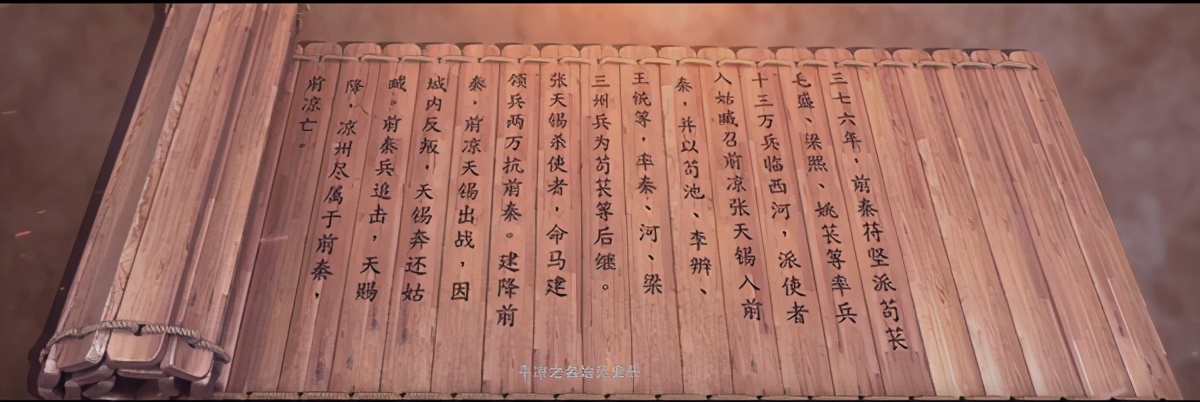 三七六年，前秦苻坚派苟苌
毛盛、梁熙、姚苌等率兵
十三万兵临西河，派使者
入姑臧召前凉张天锡入前
秦，并以苟池、李辨、
王统等，率秦、河、梁
三州兵为苟苌等后继。
张天锡杀使者，命马建
领兵两万抗前秦。建降前
秦，前凉天锡出战，因
城内反叛，天锡奔还姑
臧。前秦兵追击，天赐
降，凉州尽属于前秦，
前凉亡。